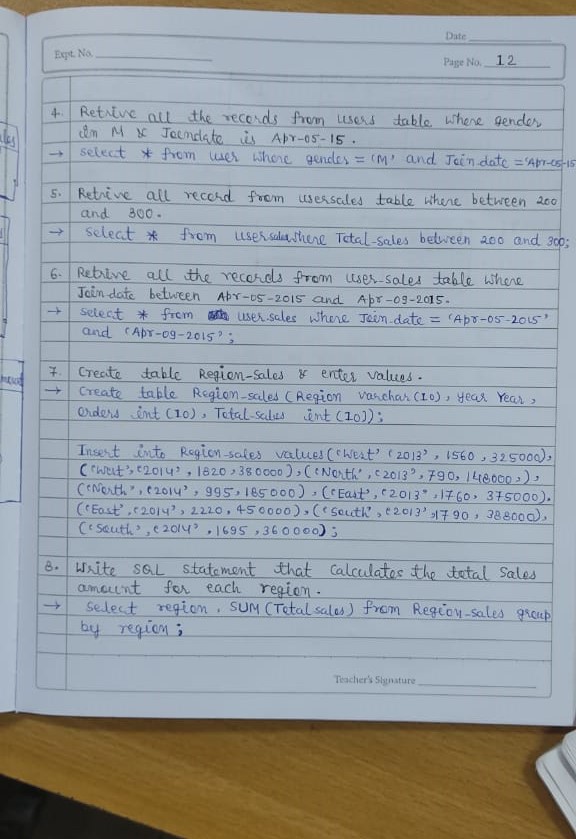 Date
Expt. No.
Page No. 12
4. Retrive all the records from users table where gender
in M & Joindate is Apr-05-15.
→ select * from user where gender = 'M' and Join date = 'Apr-05-15
5. Retrive all record from usersales table where between 200
and 300.
→ select * from usersales where Total-sales between 200 and 300;
6. Retrive all the records from user-sales table where
Join-date between Apr-05-2015 and Apr-09-2015.
→ select * from user sales where Join-date = 'Apr-05-2015'
and 'Apr-09-2015';
7. Create table Region-sales & enter values.
→ Create table Region-sales (Region varchar(10), year Year,
orders int (10), Total-sales int (10));
Insert into Region-sales values ('West' '2013', 1560, 325000),
('West', '2014', 1820, 380000), ('North', '2013', 790, 148000,),
('North', '2014', 995, 185000), ('East', '2013', 1760, 375000).
('East', '2014', 2220, 450000), ('South', '2013', 1790, 388000),
('South', '2014', 1695, 360000);
8. Write SQL statement that calculates the total sales
amount for each region.
→ select region, SUM (Total sales) from Region-sales group
by region;
Teacher's Signature